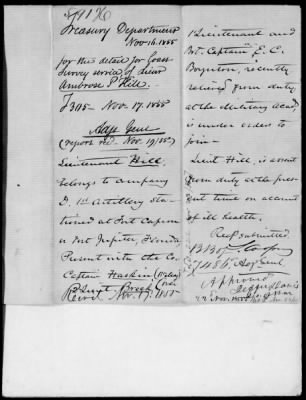 Treasury Department
Nov. 16. 1855
for the detail for Coast
Survey service, of Lieut
Ambrose P. Hill.
T 345 - Nov. 17. 1855
Adjt Genl
(report recd. Nov. 19/55)
Lieutenant Hill,
belongs to company
D. 1st Artillery sta-
tioned at Fort Capron
n Fort Jupiter, Florida
Present with the Co.
Captain Haskin
Lieut.
(over
Recvd. Nov. 17. 1855
1 Lieutenant and
Bt. Captain E. C.
Boynton, recently
relieved from duty
at the Military Acad,
is under orders to
join -
Lieut Hill, is absent
from duty at the pres-
ent time on account
of ill health.
Resp submitted
Adj Genl
Approved
Jefferson Davis
22 Nov. 1855